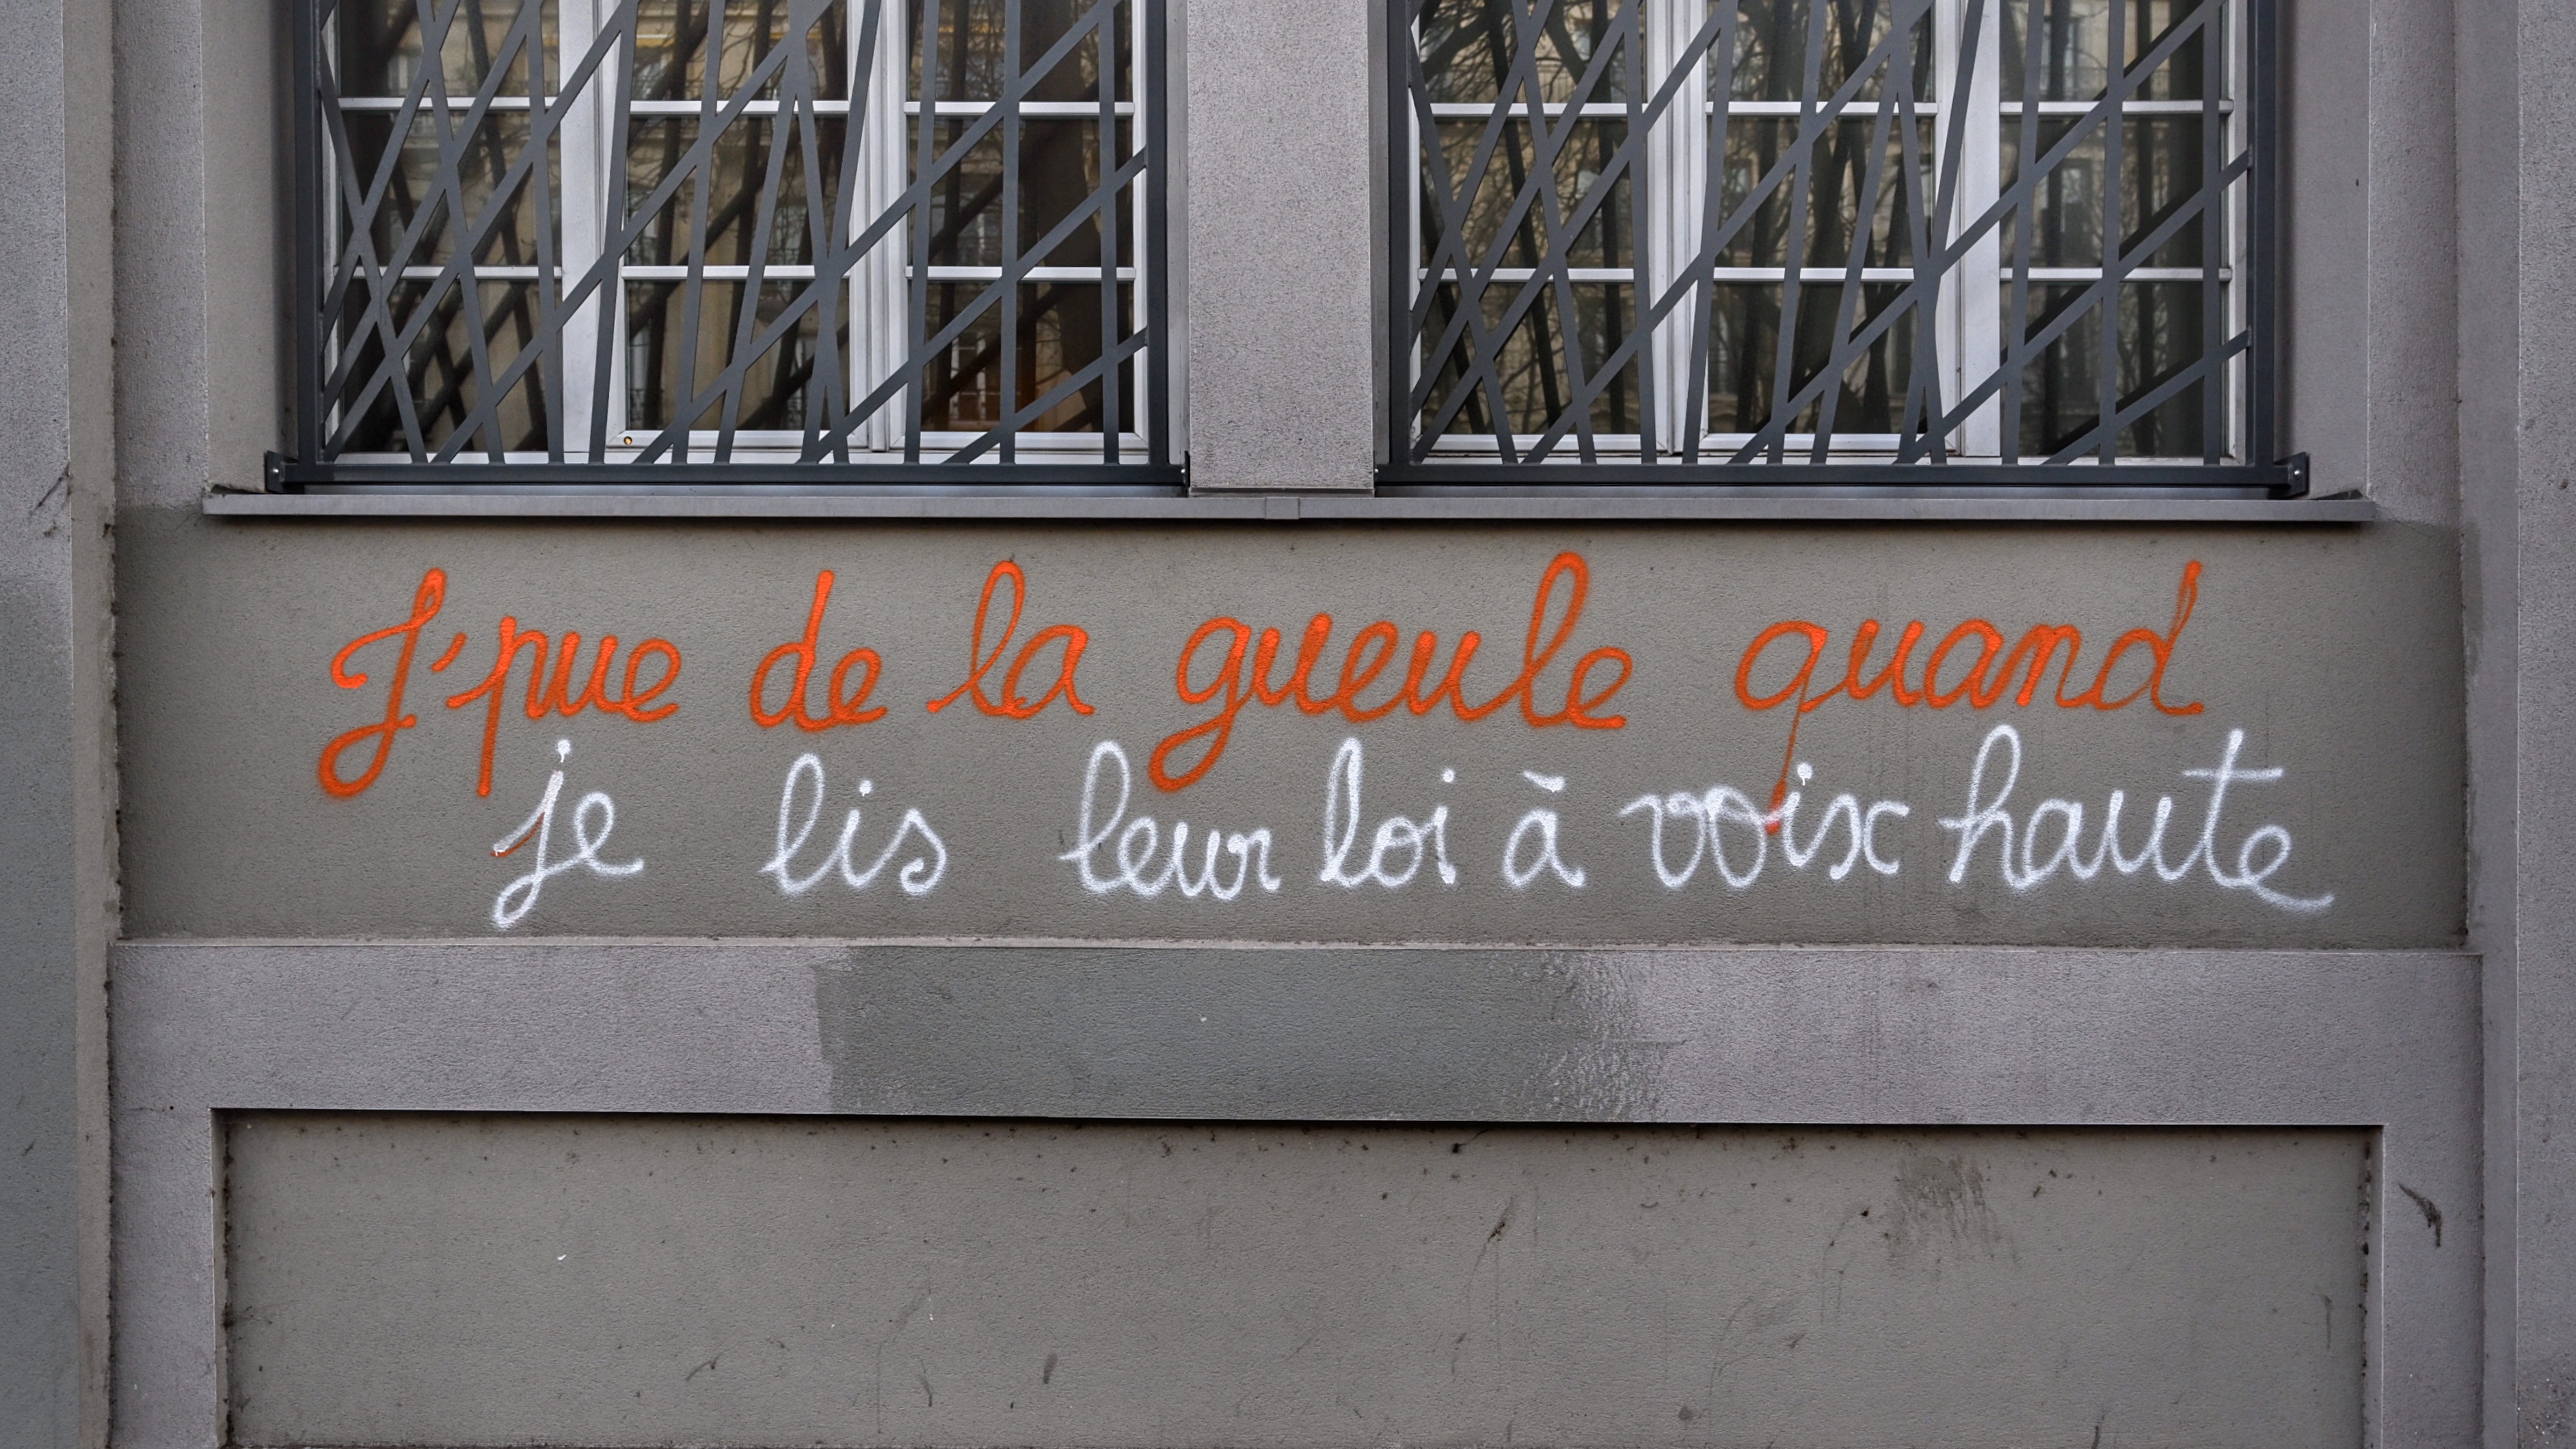 J'pue de la gueule quand
je lis leur loi à voix haute